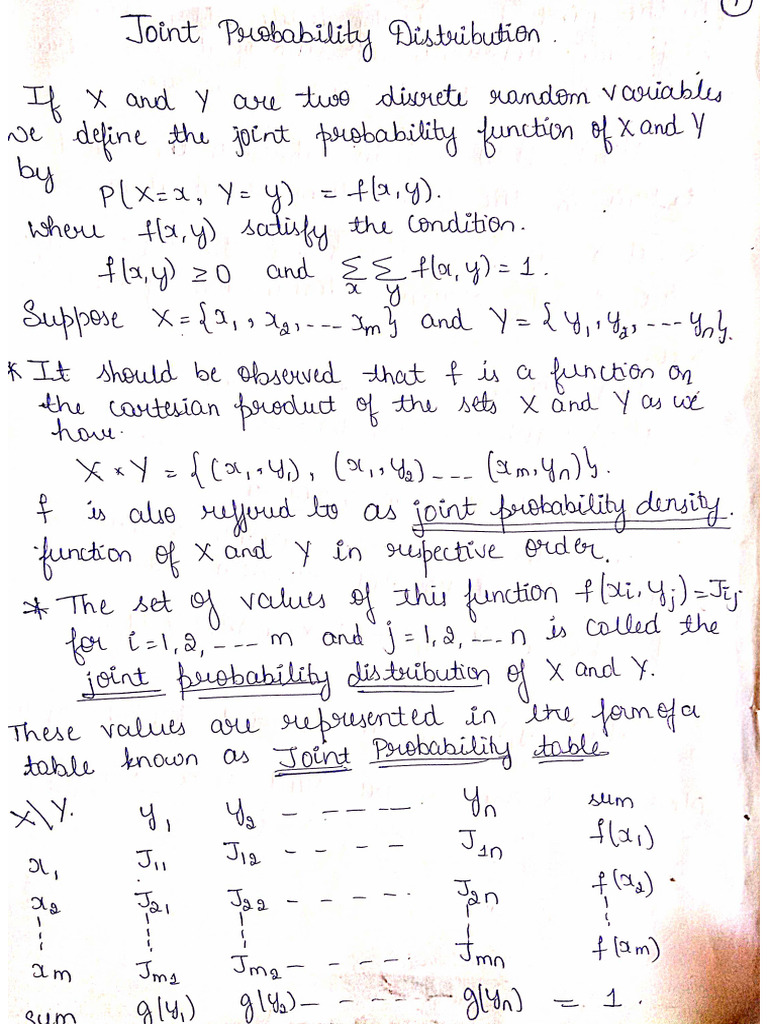 Joint Probability Distribution.
If X and Y are two discrete random variables
we define the joint probability function of X and Y
by
P(X=x, Y=y) = f(x,y).
where f(x,y) satisfy the condition.
f(x,y) ≥ 0 and Σ_x Σ_y f(x,y) = 1.
Suppose X = {x₁, x₂, --- xₘ} and Y = {y₁, y₂, --- yₙ}.
* It should be observed that f is a function on
the cartesian product of the sets X and Y as we
have.
X × Y = {(x₁, y₁), (x₁, y₂) --- (xₘ, yₙ)}.
f is also reffered to as joint probability density.
function of X and Y in respective order.
* The set of values of this function f(xi, yj) = Jij
for i = 1, 2, ---- m and j = 1, 2, ---- n is called the
joint probability distribution of X and Y.
These values are represented in the form of a
table known as Joint Probability table
X\Y. y₁ y₂ - - - - - yₙ sum
x₁ J₁₁ J₁₂ - - - - J₁ₙ f(x₁)
x₂ J₂₁ J₂₂ - - - - - J₂ₙ f(x₂)
xₘ Jₘ₁ Jₘ₂ - - - - - Jₘₙ f(xₘ)
sum g(y₁) g(y₂) - - - - - g(yₙ) = 1.